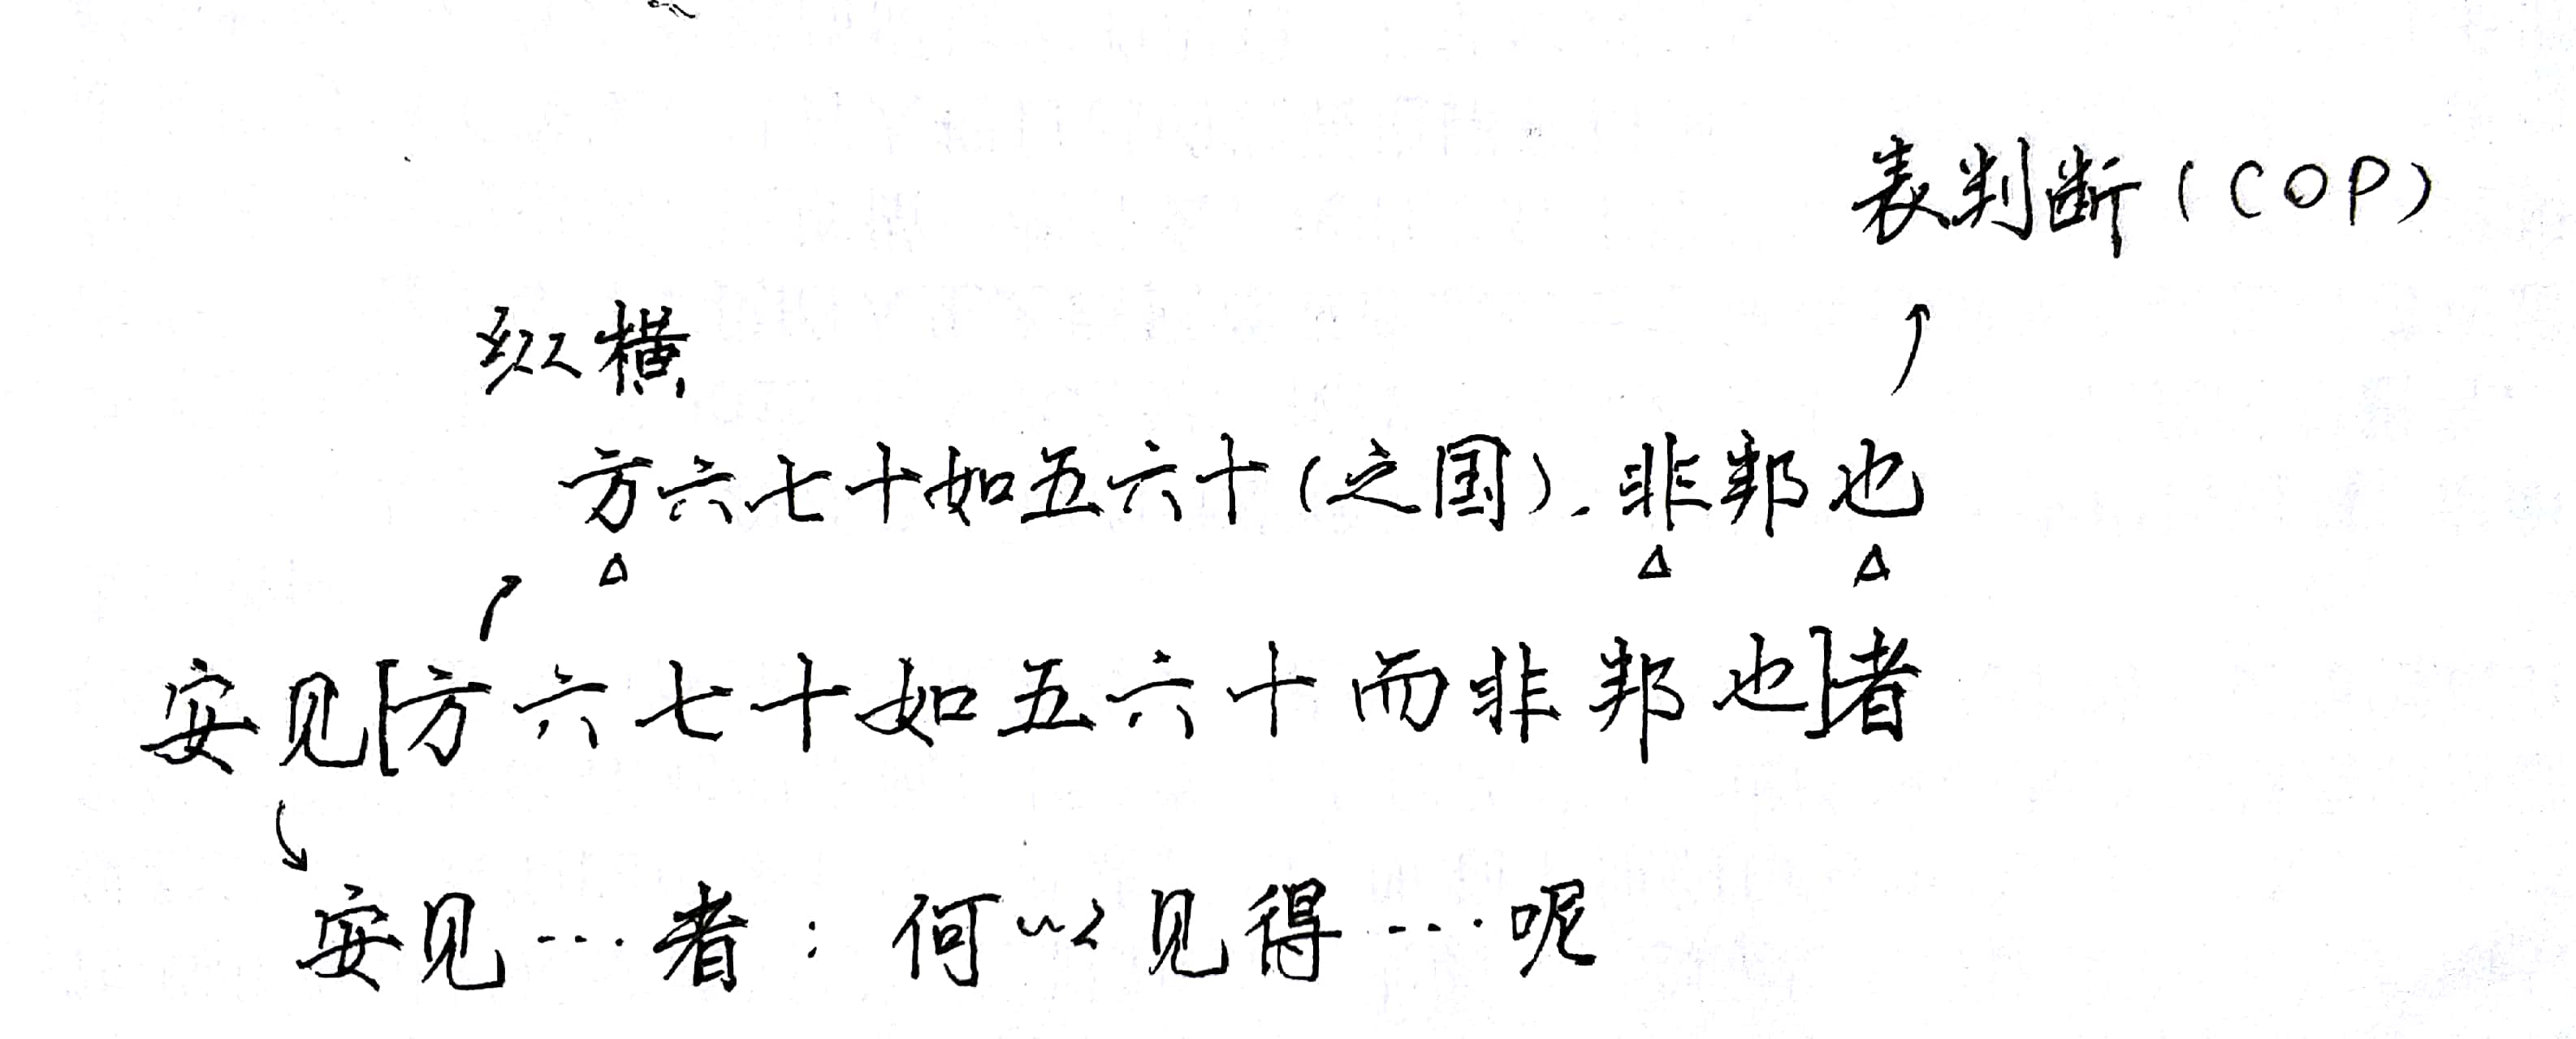 表判断(COP)
纵横
方六七十如五六十(之国).非邦也
安见[方六七十如五六十而非邦也]者
安见…者:何以见得…呢